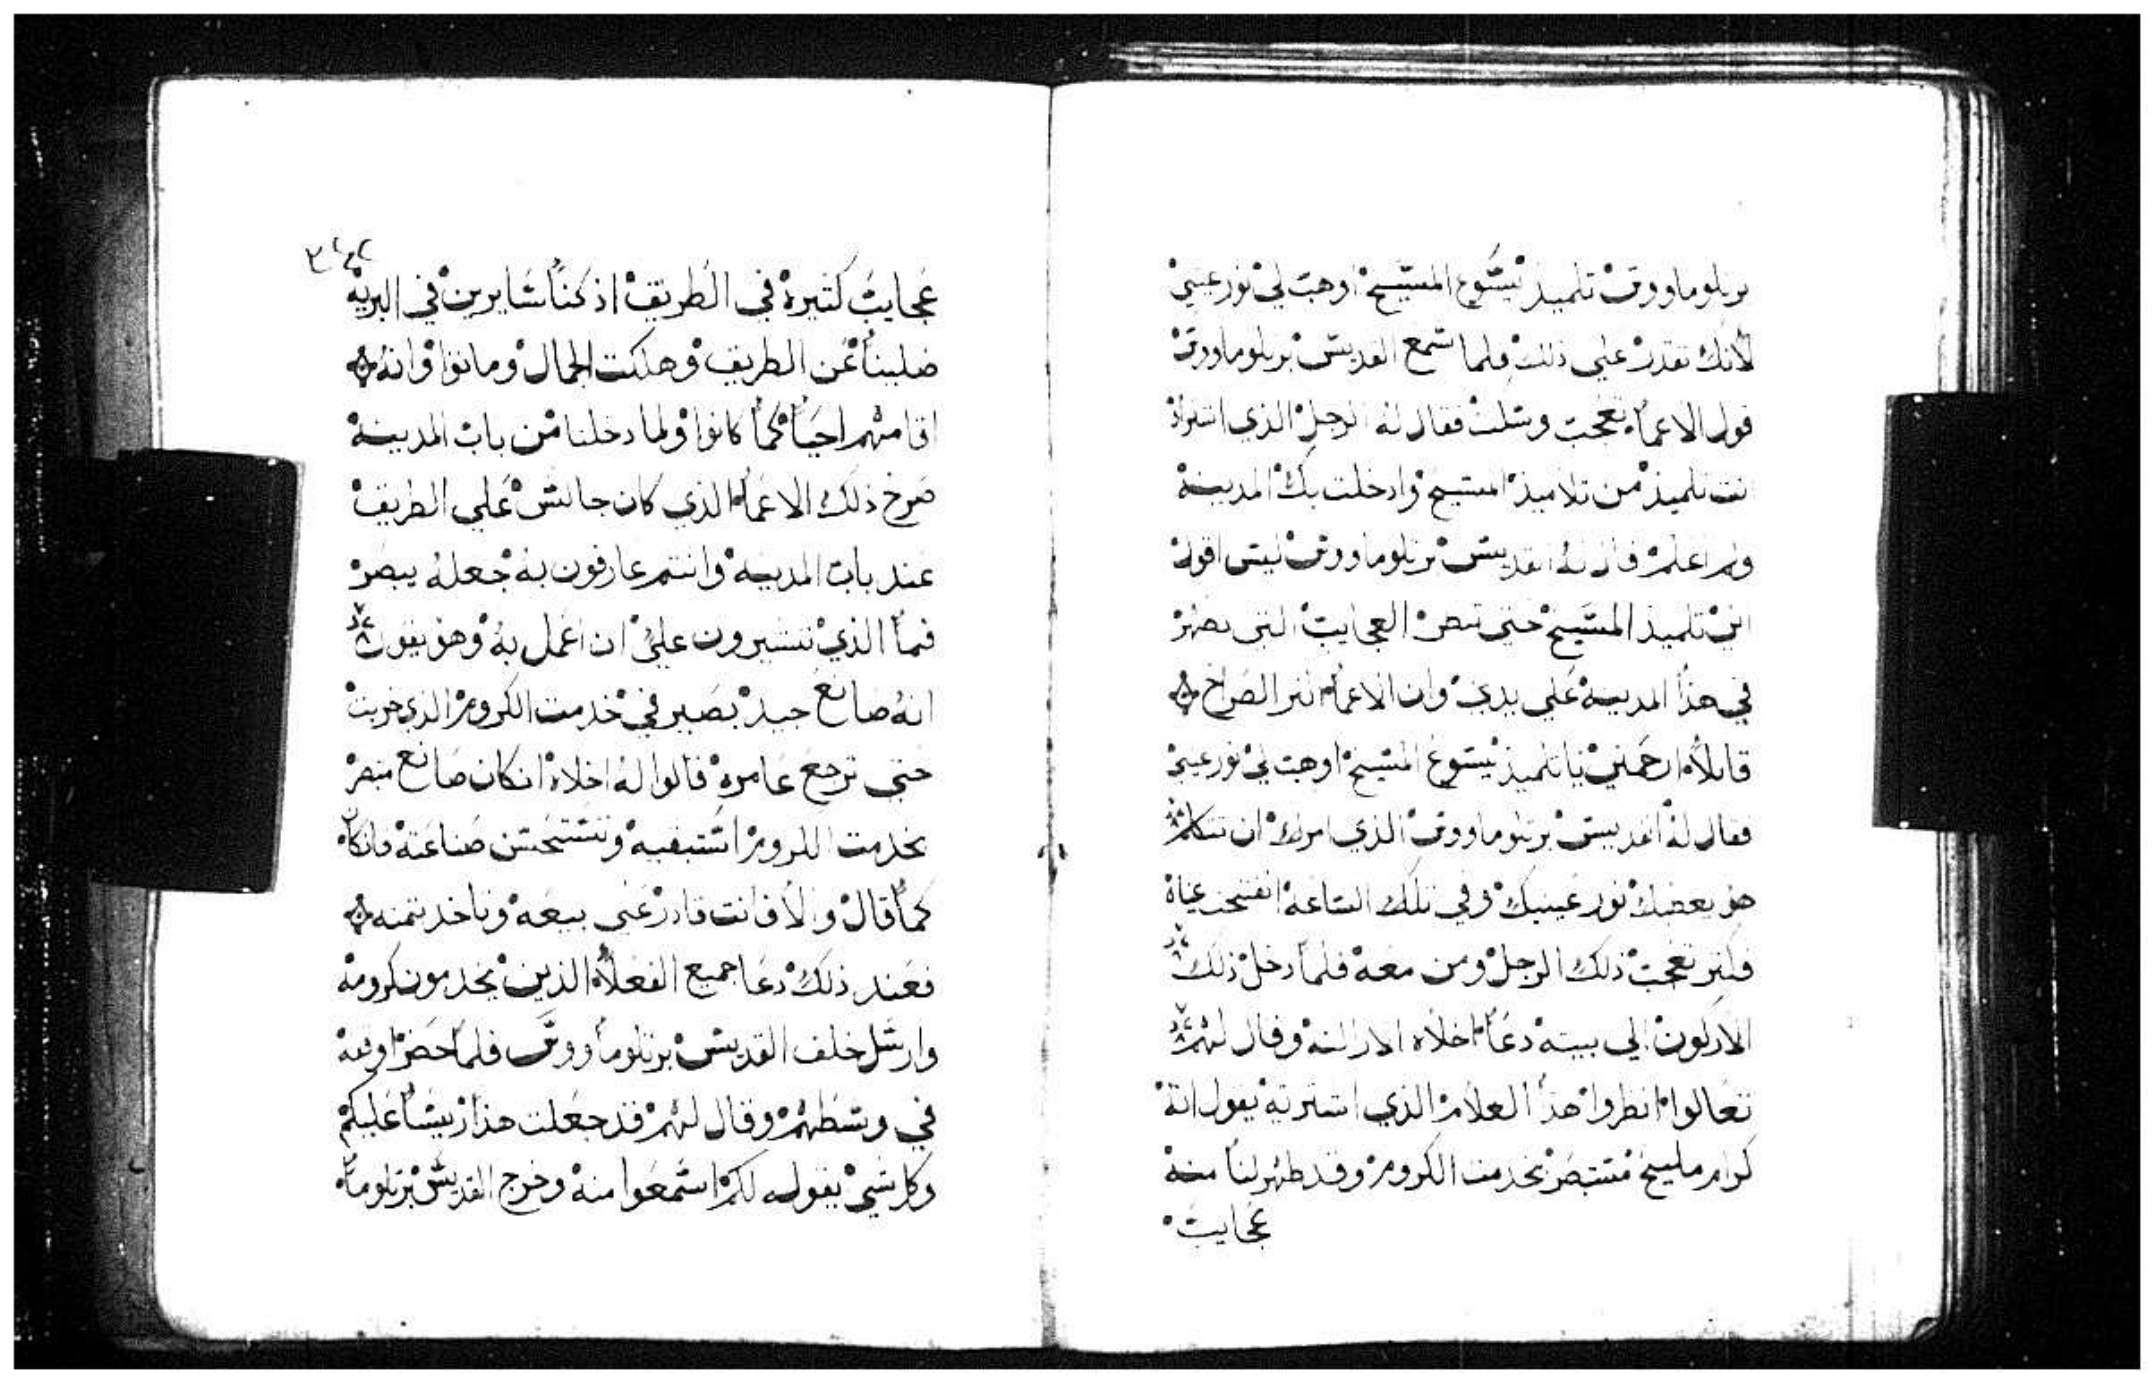 برتلوماووس تلميذ يسوع المسيح اوهب لي نور عيني
لانك تقدر علي ذلك فلما سمع القديس برتلوماووس
قول الاعما تعجب وسكت فقال له الرجل الذي اشتراه
انت تلميذ من تلاميذ المسيح وادخلت بك المدينة
ولم اعلم قال له القديس برتلوماووس ليس اقول
اني تلميذ المسيح حتي تبصر العجايب التي تظهر
في هذا المدينة علي يدي وان الاعما اكثر الصراخ
قايلا ارحمني يا تلميذ يسوع المسيح اوهب لي نور عيني
فقال له القديس برتلوماووس الذي امرك ان تتكلم
هو يعطيك نور عينيك وفي تلك الساعة انفتحت عيناه
فكثر تعجب ذلك الرجل ومن معه فلما دخل ذلك
الاركون الي بيته دعا اخلاه الاراكنة وقال لهم
تعالوا انظروا هذا الغلام الذي اشتريته يقول انه
كرام مليح مستبصر بخدمت الكروم وقد ظهر لنا منه
عجايب
عجايب كثيرة في الطريق اذ كنا سايرين في البرية
ضلينا عن الطريق وهلكت الجمال وماتوا وانه
اقامهم احيا كما كانوا ولما دخلنا من باب المدينة
صرخ ذلك الاعما الذي كان جالس علي الطريق
عند باب المدينة وانتم عارفون به جعله يبصر
فما الذي تشيرون علي ان اعمل به وهو يقول
انه صانع جيد بصير في خدمت الكروم الذي خربت
حتي ترجع عامرة قالوا له اخلاه ان كان صانع مبصر
بخدمت الكروم استبقيه ونستحسن صناعته فان كان
كما قال والا فانت قادر علي بيعه وتاخد تمنه
فعند ذلك دعا جميع الفعلاه الذين يخدمون كرومه
وارسل خلف القديس برتلوماووس فلما حضر اوقفه
في وسطهم وقال لهم قد جعلت هذا ريسا عليكم
وكل شي يقوله لكم اسمعوا منه وخرج القديس برتلوما